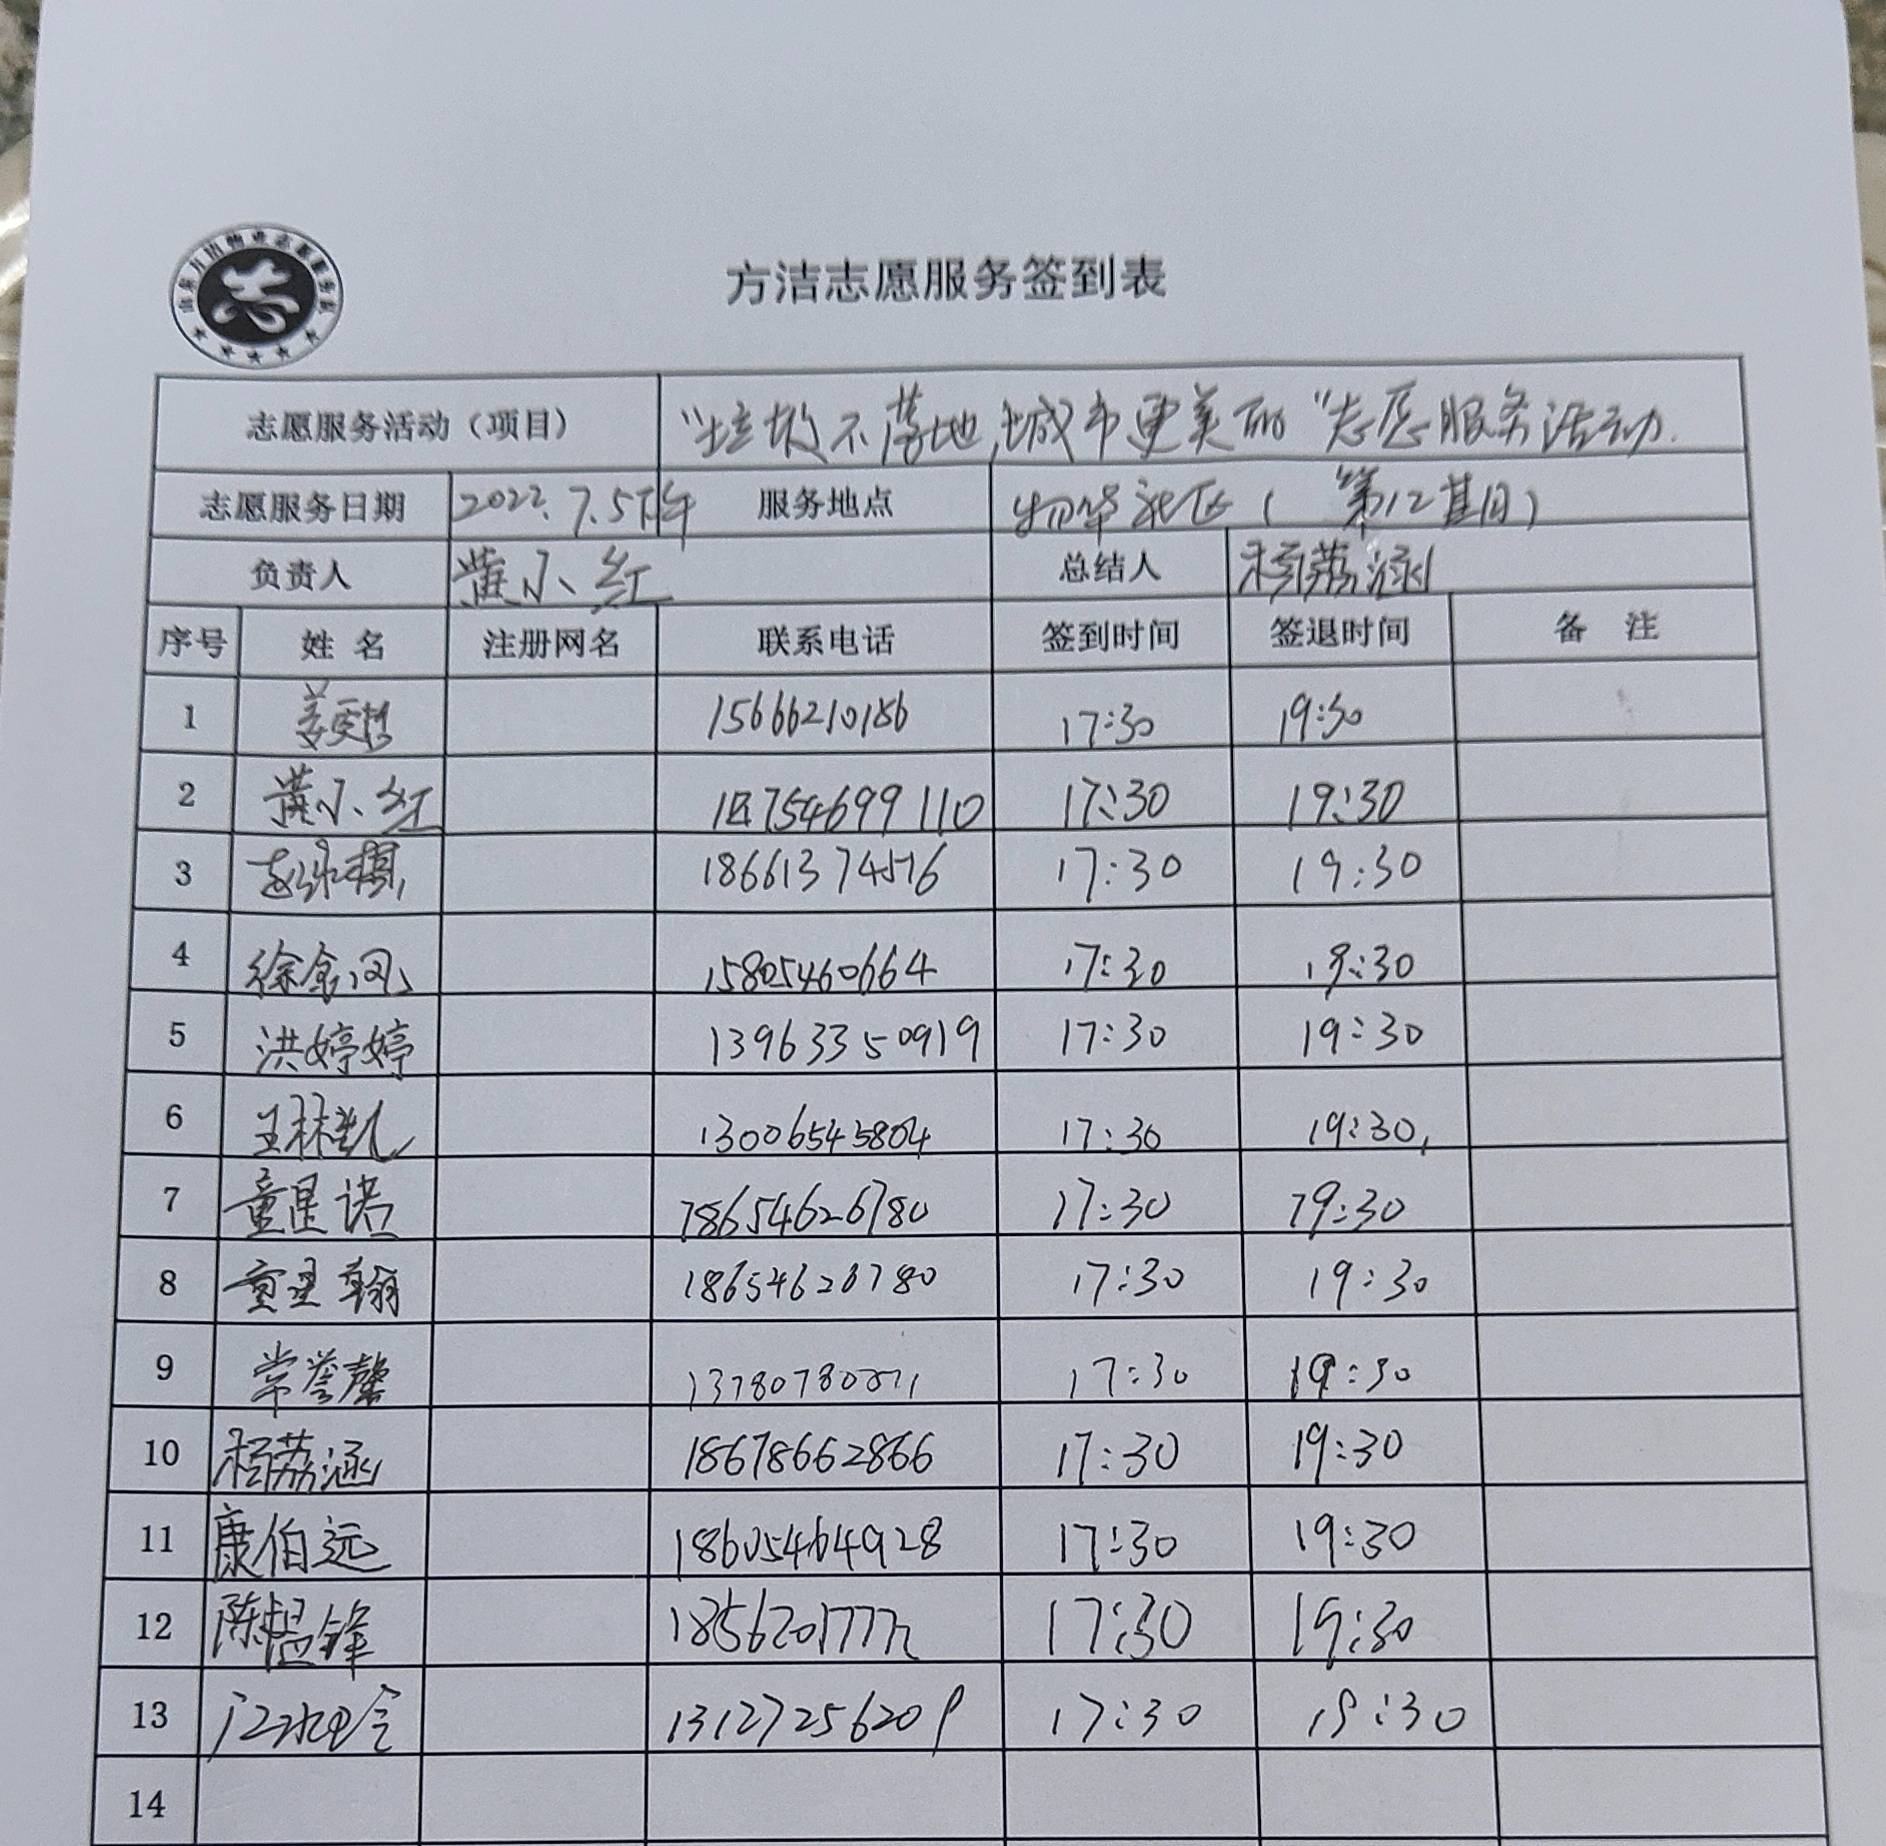 方洁志愿服务签到表
志愿服务活动（项目） "垃圾不落地，城市更美丽"志愿服务活动.
志愿服务日期 2022.7.5下午 服务地点 物华社区（第12基日）
负责人 黄小红 总结人 杨荔涵
序号 姓名 注册网名 联系电话 签到时间 签退时间 备注
1 15666210186 17:30 19:30
2 黄小红 18754699110 17:30 19:30
3 18661374576 17:30 19:30
4 15805460664 17:30 19:30
5 洪婷婷 13963350919 17:30 19:30
6 王林凯 13006545804 17:30 19:30
7 童星诺 18654626780 17:30 19:30
8 童星翰 18654626780 17:30 19:30
9 常誉馨 17:30 19:30
10 杨荔涵 18678662866 17:30 19:30
11 康伯远 18605464928 17:30 19:30
12 陈韫锋 17:30 19:30
13 13127256209 17:30 19:30
14